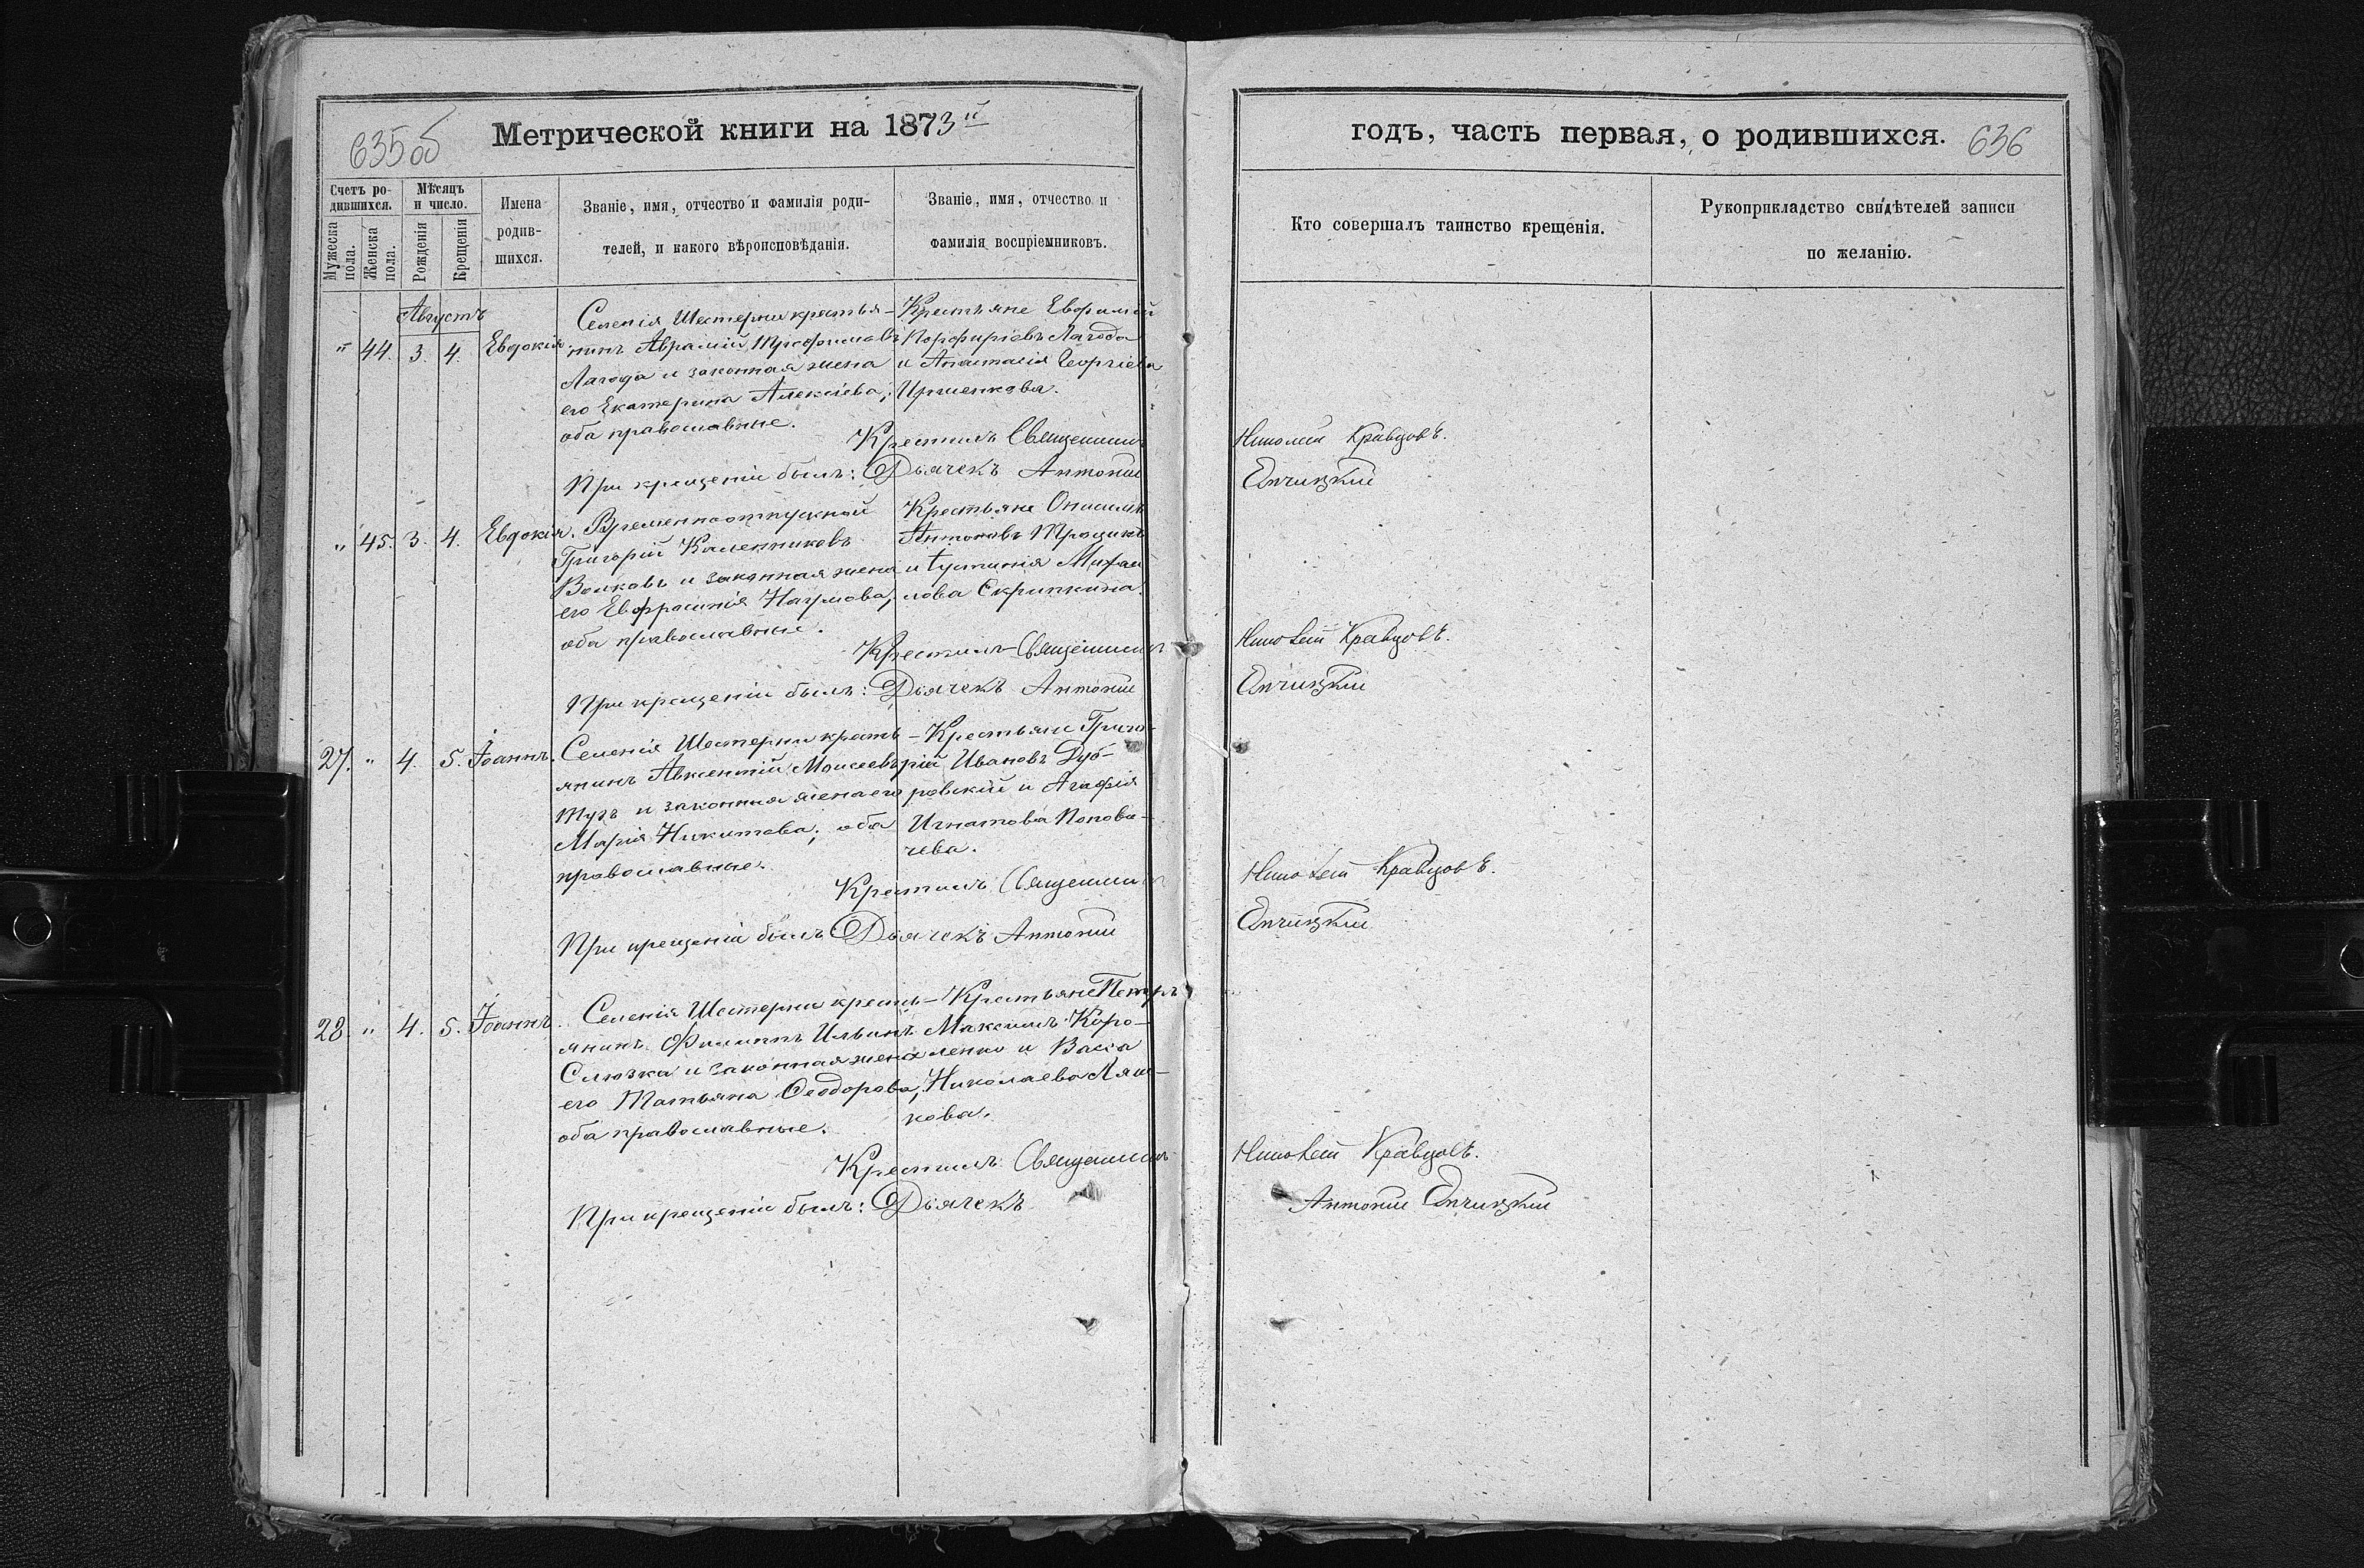 635об
Метрической книги на 1873й
Счетъ ро-
дившихся.
Мужеска
пола.
Женска
пола.
Мѣсяцъ
и число.
Рожденія
Крещенія
Имена
родив-
шихся.
Званіе, имя, отчество и фамилія роди-
телей, и какого вѣроисповѣданія.
Званіе, имя, отчество и
фамилія воспріемниковъ.
Августъ
" 44. 3. 4. Евдокія
Селенія Шестерни крестья-
нинъ Аврамій Трофимовъ
Лагода и законная жена
его Екатерина Алексіева,
оба православные.
Крестьяне Евфимій
Порфиріевъ Лагода
и Анастасія Георгіева
Крестилъ Священникъ
При крещеніи былъ: Дьячекъ Антоній
" 45. 3. 4. Евдокія.
Временноотпускной
Григорій Каленниковъ
Волковъ и законная жена
его Евфросинія Наумова,
оба православные.
Крестьяне Онисимъ
Антоновъ Троцикъ
и Іустинія Михаи
лова Скрипкина.
Крестилъ Священникъ
При крещеніи былъ: Дьячекъ Антоній
27. " 4. 5. Іоаннъ.
Селенія Шестерни кресть-
янинъ Авксентій Моисеевъ
Тузъ и законная жена его
Марія Никитова; оба
православные.
Крестьяне Григо-
рій Ивановъ Дуб-
ровскій и Агафія
Игнатова Попови-
чева.
Крестилъ Священникъ
При крещеніи былъ Дьячекъ Антоній
28. " 4. 5. Іоаннъ.
Селенія Шестерни кресть-
янинъ Филиппъ Ильинъ
Слюзка и законная жена
его Татьяна Ѳеодорова,
оба православные.
Крестьяне Петръ
Максимъ Коро-
ленко и Васса
Николаева Ляш-
кова.
Крестилъ Священникъ
При крещеніи былъ: Дьячекъ
годъ, часть первая, о родившихся. 636
Кто совершалъ таинство крещенія.
Рукоприкладство свидѣтелей записи
по желанію.
Николай Кравцовъ.
Николай Кравцовъ.
Николай Кравцовъ.
Николай Кравцовъ.
Антоній